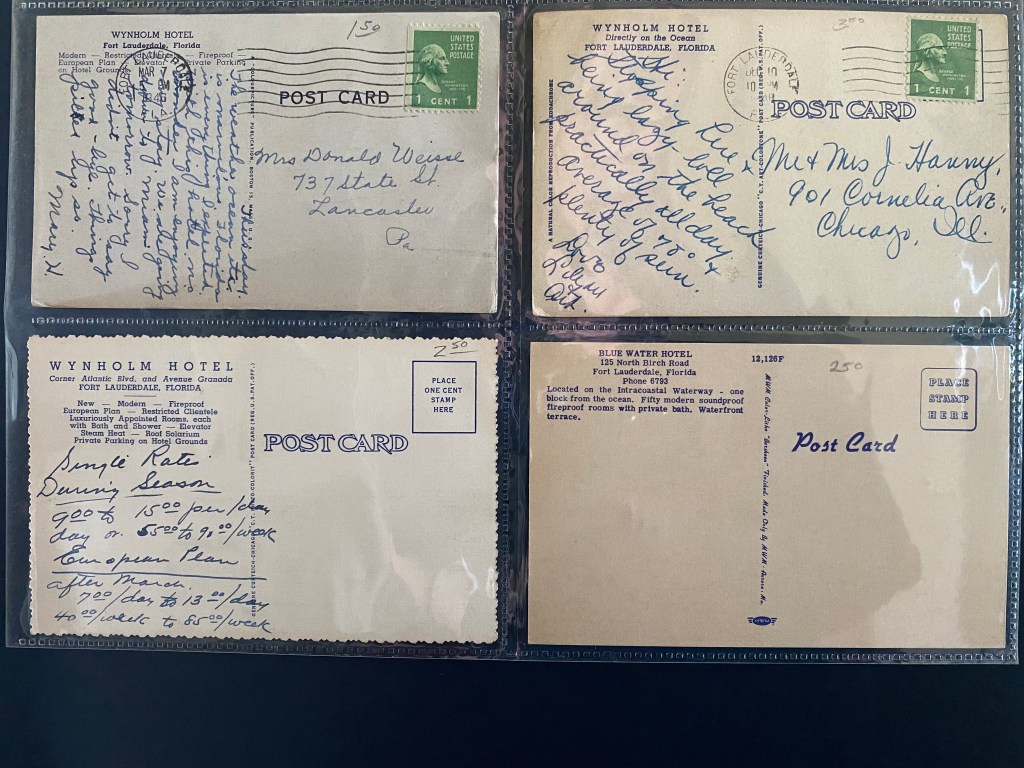 WYNHOLM HOTEL
Fort Lauderdale, Florida
Modern — Restricted — Fireproof
European Plan — Elevator — Private Parking
on Hotel Grounds
MAR 7
PM
1 50
UNITED
STATES
POSTAGE
1 CENT 1
POST CARD
Wednesday.
The weather over here
is marvelous, Florida
is everything I expected.
Am enjoying
going
to Miami
tomorrow. Sorry I
didn't get to say
good-bye. Things
piled up so.
Mary H
Mrs Donald Weisse
737 State St.
Lancaster
Pa
WYNHOLM HOTEL
Directly on the Ocean
FORT LAUDERDALE, FLORIDA
A NATURAL COLOR REPRODUCTION FROM KODACHROME
GENUINE CURTEICH-CHICAGO "C.T. ART-COLORTONE" POST CARD (REG. U.S. PAT. OFF.)
FORT LAUDERDALE
DEC 10
10 PM
3 50
UNITED
STATES
POSTAGE
1 CENT 1
POST CARD
Hi:
Keeping here &
being lazy. Loll
around on the beach
practically all day.
Average of 75° &
plenty of sun.
Love
Art.
Mr & Mrs J. Hanny,
901 Cornelia Ave.,
Chicago, Ill.
WYNHOLM HOTEL
Corner Atlantic Blvd. and Avenue Granada
FORT LAUDERDALE, FLORIDA
New — Modern — Fireproof
European Plan — Restricted Clientele
Luxuriously Appointed Rooms, each
with Bath and Shower — Elevator
Steam Heat — Roof Solarium
Private Parking on Hotel Grounds
2 50
PLACE
ONE CENT
STAMP
HERE
POST CARD
Single Rates
During Season
9 00 to 15 00 per/day
day or 55 00 to 90 00/week
European Plan
after March
7 00/day to 13 00/day
40 00/week to 85 00/week
BLUE WATER HOTEL
125 North Birch Road
Fort Lauderdale, Florida
Phone 6793
Located on the Intracoastal Waterway - one
block from the ocean. Fifty modern soundproof
fireproof rooms with private bath. Waterfront
terrace.
12,126F
250
PLACE
STAMP
HERE
Post Card
MWM